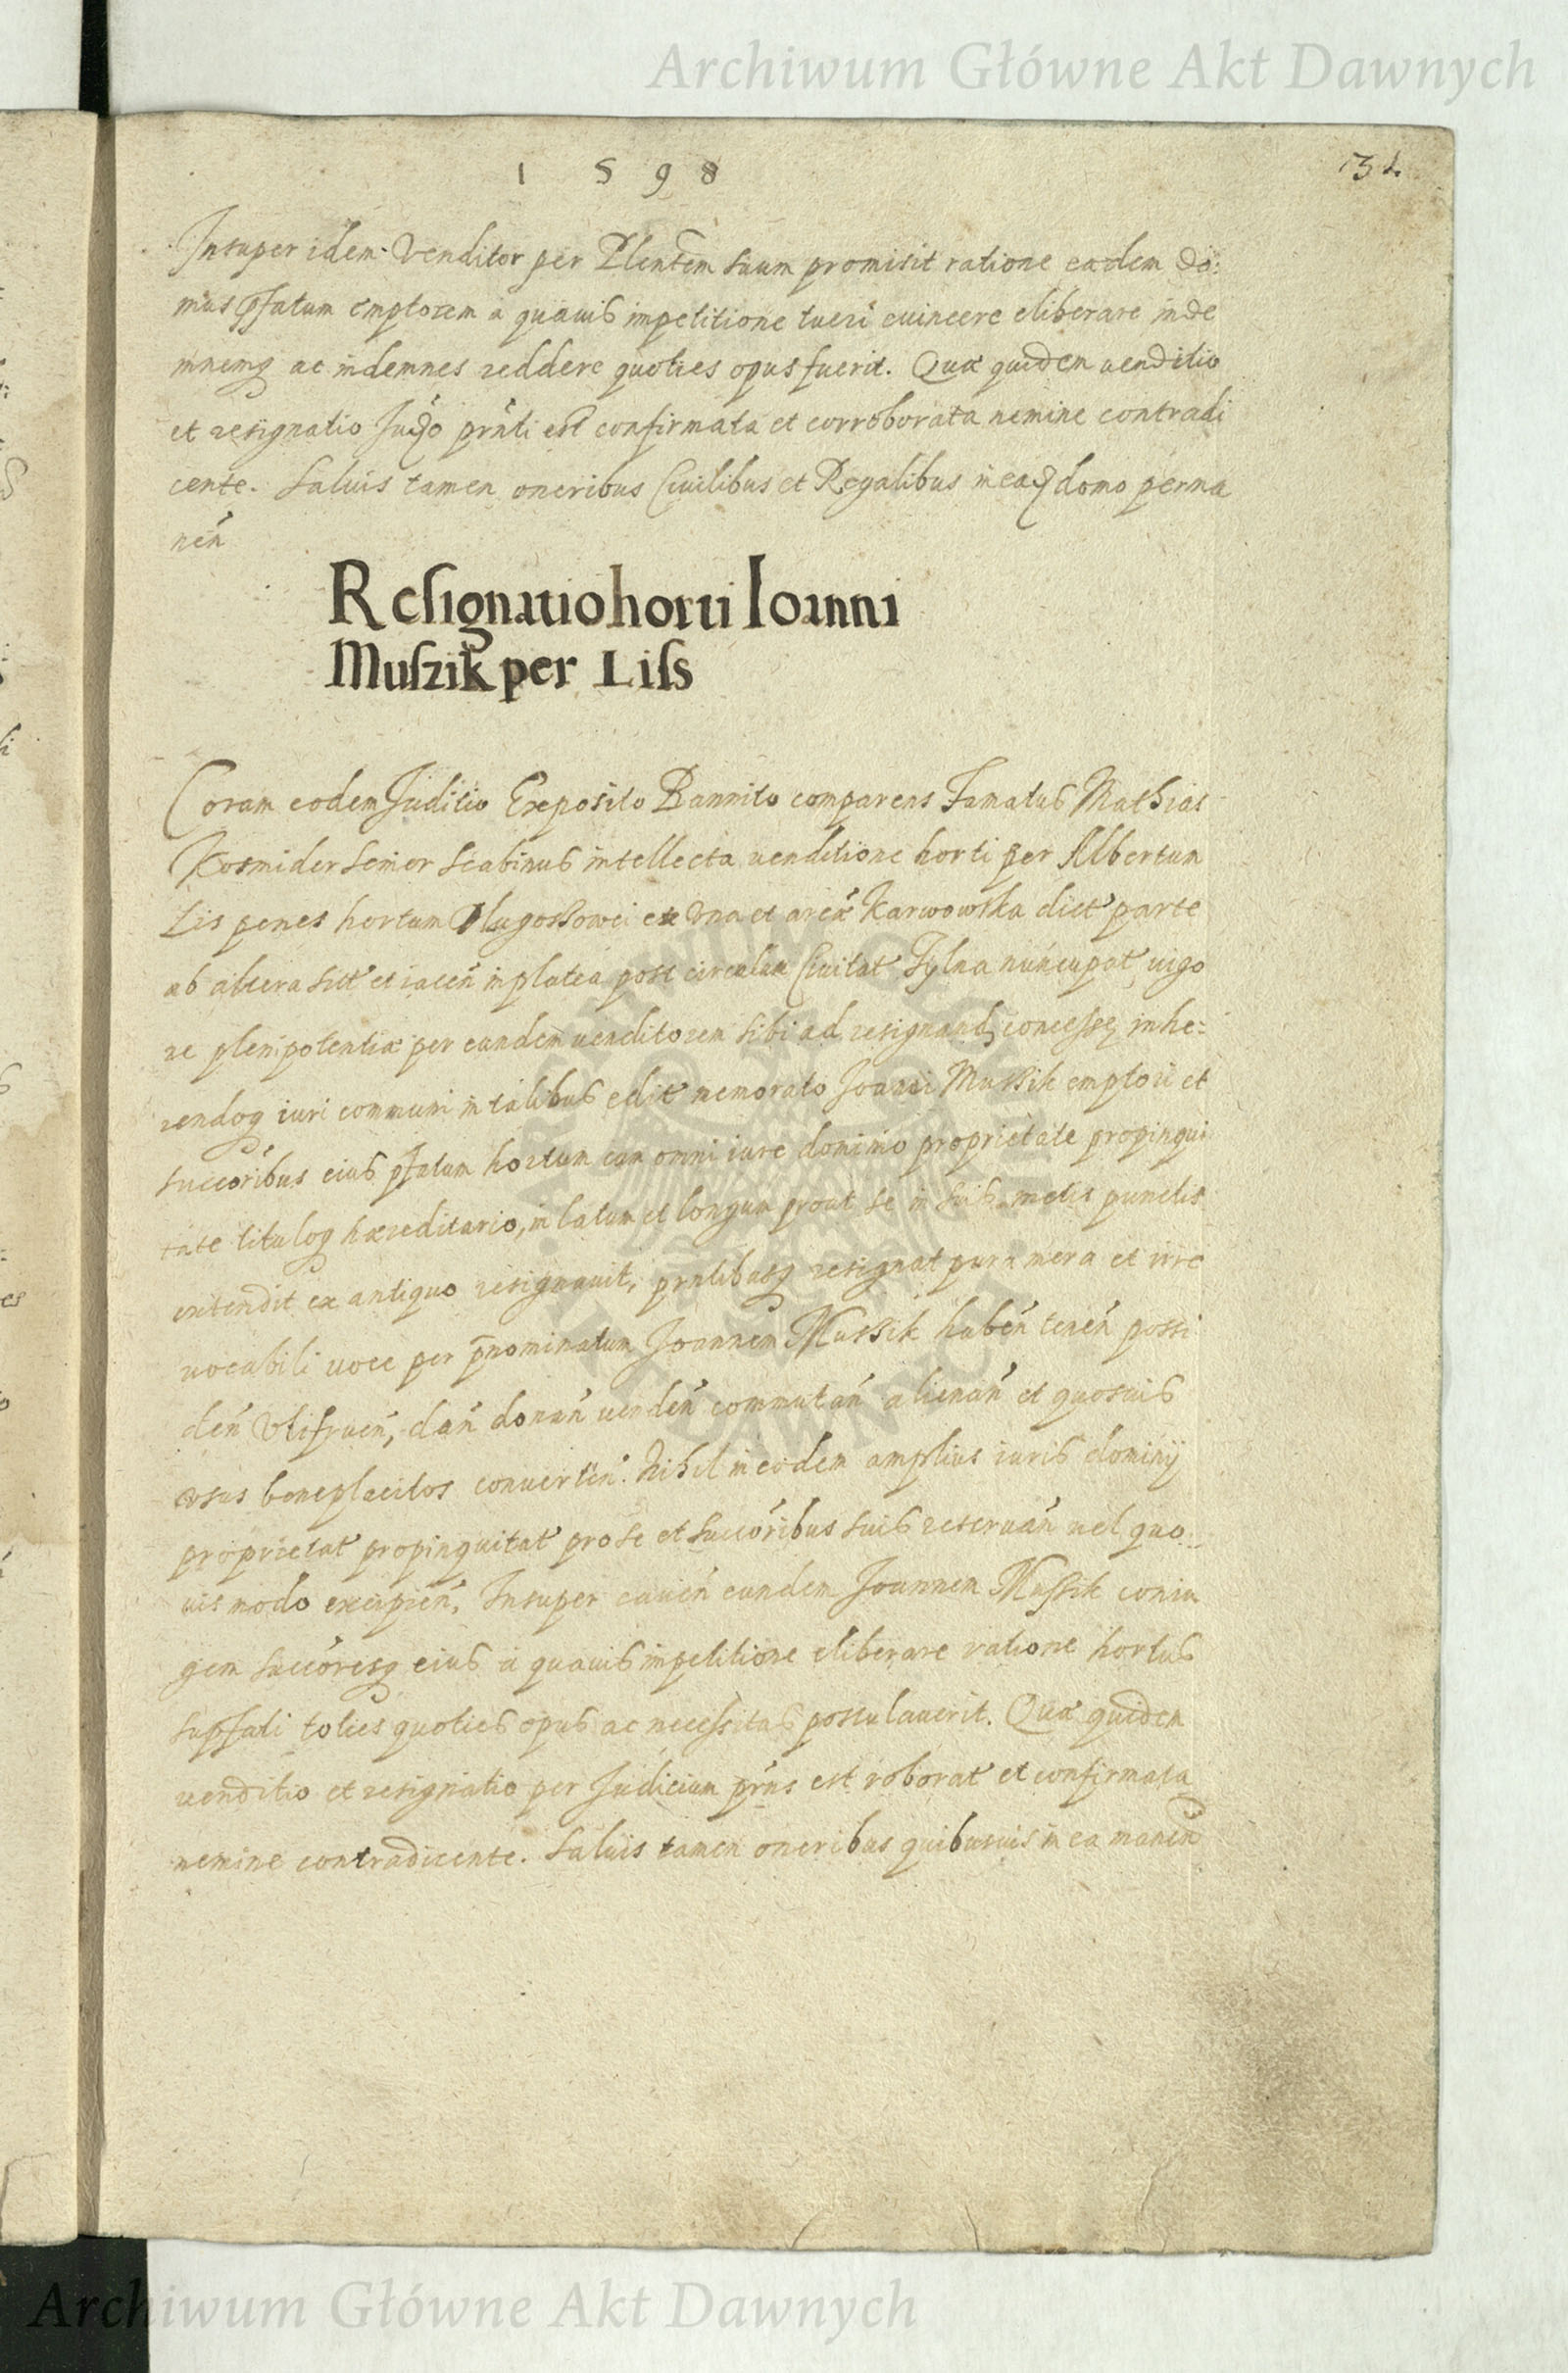 Archiwum Główne Akt Dawnych
1 5 9 8
Insuper idem Venditor per Plentem suum promisit ratione eadem do:
mus pfatum emptorem a quavis impetitione tueri evincere eliberare inde
mnemq ac indemnes reddere quoties opus fuerit. Quæ quidem venditio
et resignatio Judo prnti est confirmata et corroborata nemine contradi
cente. Salvis tamen oneribus Civilibus et Regalibus in ead domo perma
nen
Resignatio horti Ioanni
Muszik per Liss
Coram eodem Juditio Exposito Bannito comparens Famatus Mathias
Kosmider Senior Scabinus intellecta venditione horti per Albertum
Lis penes hortum Dlugossowei ex Una et area Karwowska dict parte
ab altera sitt et iacen in platea post circulum Civitat Tylna nuncupat vigo
re plenipotentiæ per eundem venditorem sibi ad resignand concessæ inhe:
rendoq iuri communi in talibus edit memorato Joanni Mussik emptori et
succoribus eius pfatum hortum cum omni iure dominio proprietate propinqui
tate tituloq hæreditario, in latum et longum prout se in suis metis punctis
extendit ex antiquo resignavit, prntibusq resignat pura mera et irre
vocabili voce per pnominatum Joannem Mussik haben tenen possi
den Utifruen, dan donan venden commutan alienan et quosvis
usus beneplacitos converten. Nihil in eodem amplius iuris dominij
proprietat propinquitat pro se et succoribus suis reservan vel quo
vis modo excipien, Insuper caven eundem Joannem Mussik coniu
gem succoresq eius a quavis impetitione eliberare ratione hortus
supfati toties quoties opus ac necessitas postulaverit. Quæ quidem
venditio et resignatio per Judicium prns est roborat et confirmata
nemine contradicente. Salvis tamen oneribus quibusvis in ea manen
Archiwum Główne Akt Dawnych